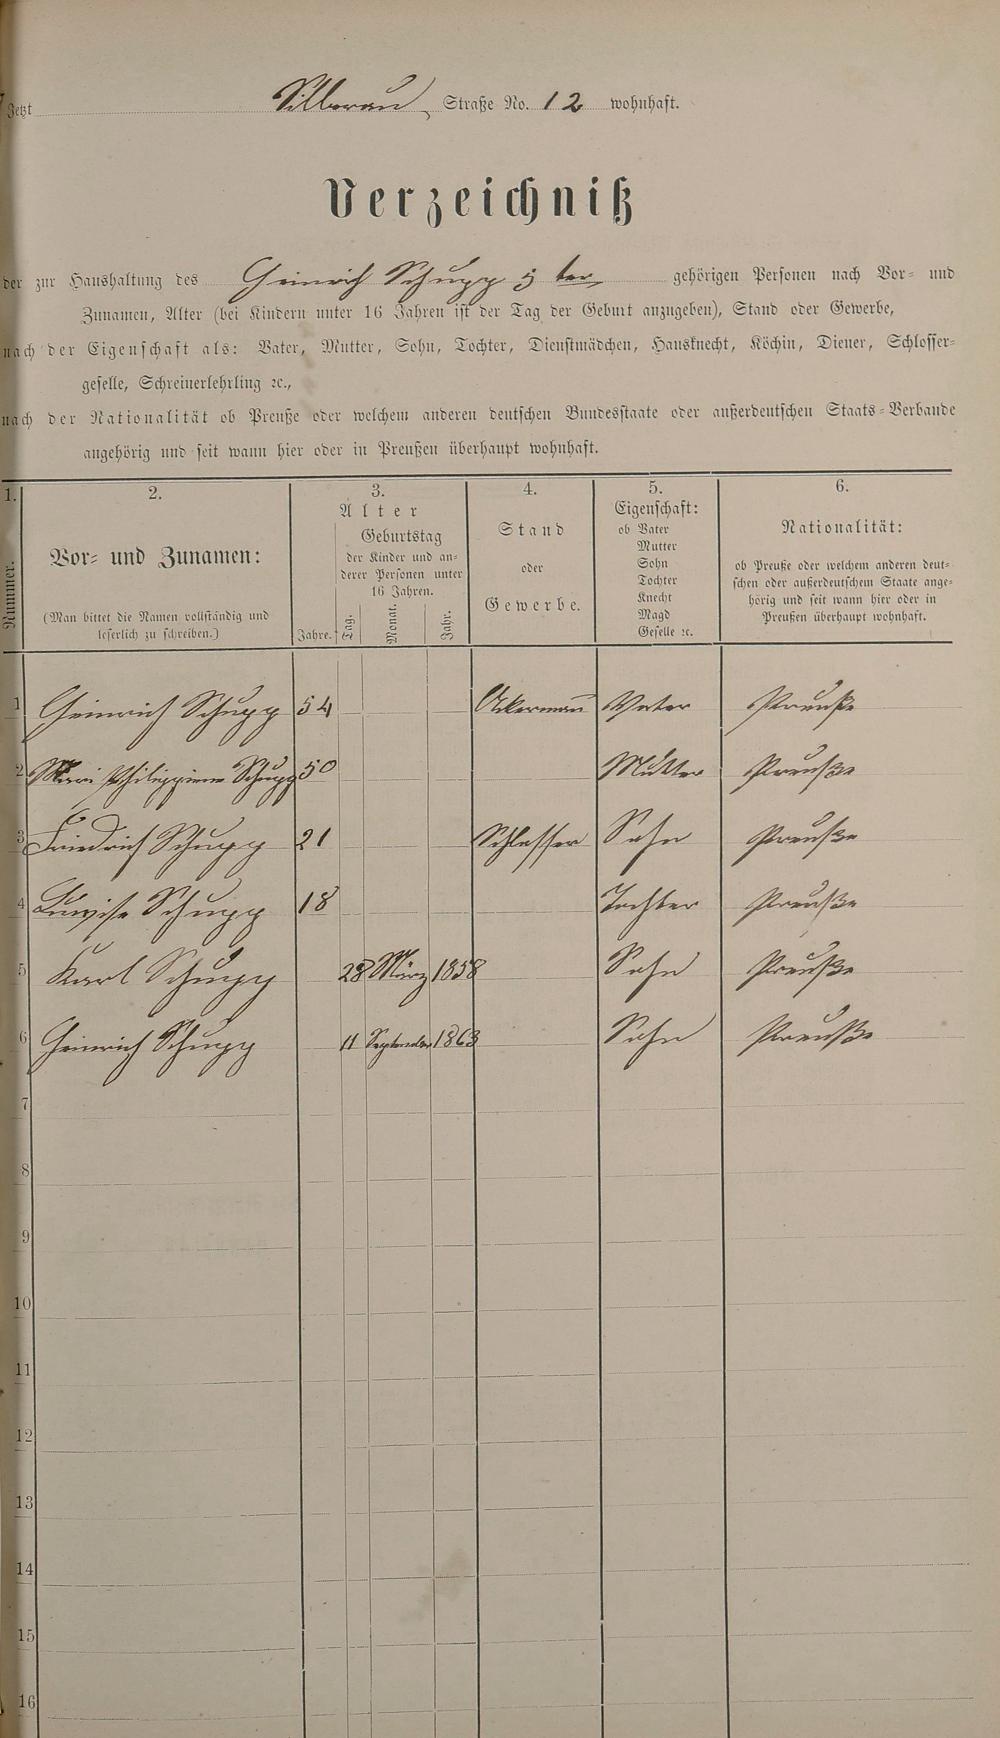 Jetzt Silberau Straße No. 12 wohnhaft.
Verzeichniß
der zur Haushaltung des Heinrich Schupp 5 ter gehörigen Personen nach Vor- und
Zunamen, Alter (bei Kindern unter 16 Jahren ist der Tag der Geburt anzugeben), Stand oder Gewerbe,
nach der Eigenschaft als: Vater, Mutter, Sohn, Tochter, Dienstmädchen, Hausknecht, Köchin, Diener, Schlosser-
geselle, Schreinerlehrling ꝛc.,
nach der Nationalität ob Preuße oder welchem anderen deutschen Bundesstaate oder außerdeutschen Staats-Verbande
angehörig und seit wann hier oder in Preußen überhaupt wohnhaft.
1. 2. 3. 4. 5. 6.
Nummer.
Vor- und Zunamen:
(Man bittet die Namen vollständig und
leserlich zu schreiben.)
Alter
Jahre.
Geburtstag
der Kinder und an-
derer Personen unter
16 Jahren.
Tag. Monat. Jahr.
Stand
oder
Gewerbe.
Eigenschaft:
ob Vater
Mutter
Sohn
Tochter
Knecht
Magd
Geselle ꝛc.
Nationalität:
ob Preuße oder welchem anderen deut-
schen oder außerdeutschem Staate ange-
hörig und seit wann hier oder in
Preußen überhaupt wohnhaft.
1 Heinrich Schupp 54 Ackermann Vater Preuße
2 Mari Philippiene Schupp 50 Mutter Preuße
3 Friedrich Schupp 21 Schlosser Sohn Preuße
4 Luwise Schupp 18 Tochter Preuße
5 Karl Schupp 28 März 1858 Sohn Preuße
6 Heinrich Schupp 11 September 1863 Sohn Preuße
7
8
9
10
11
12
13
14
15
16